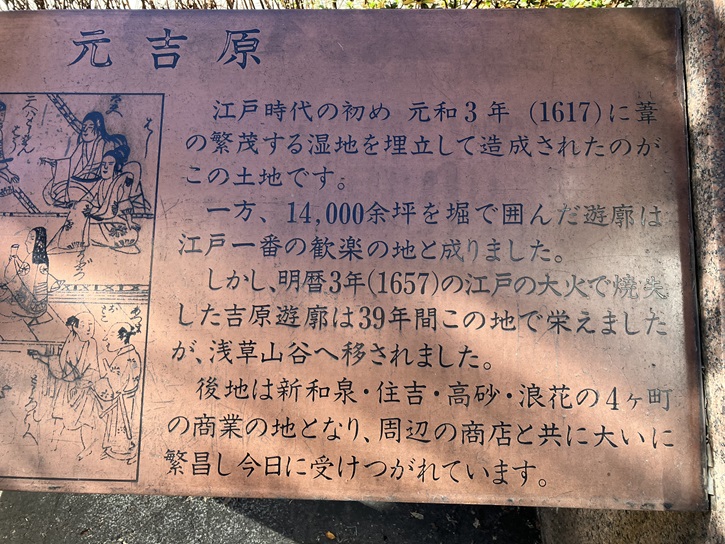 元吉原
江戸時代の初め 元和3年 (1617)に葦
の繁茂する湿地を埋立して造成されたのが
この土地です。
一方、14,000余坪を堀で囲んだ遊廓は
江戸一番の歓楽の地と成りました。
しかし、明暦3年(1657)の江戸の大火で焼失
した吉原遊廓は39年間この地で栄えました
が、浅草山谷へ移されました。
後地は新和泉・住吉・高砂・浪花の4ヶ町
の商業の地となり、周辺の商店と共に大いに
繁昌し今日に受けつがれています。